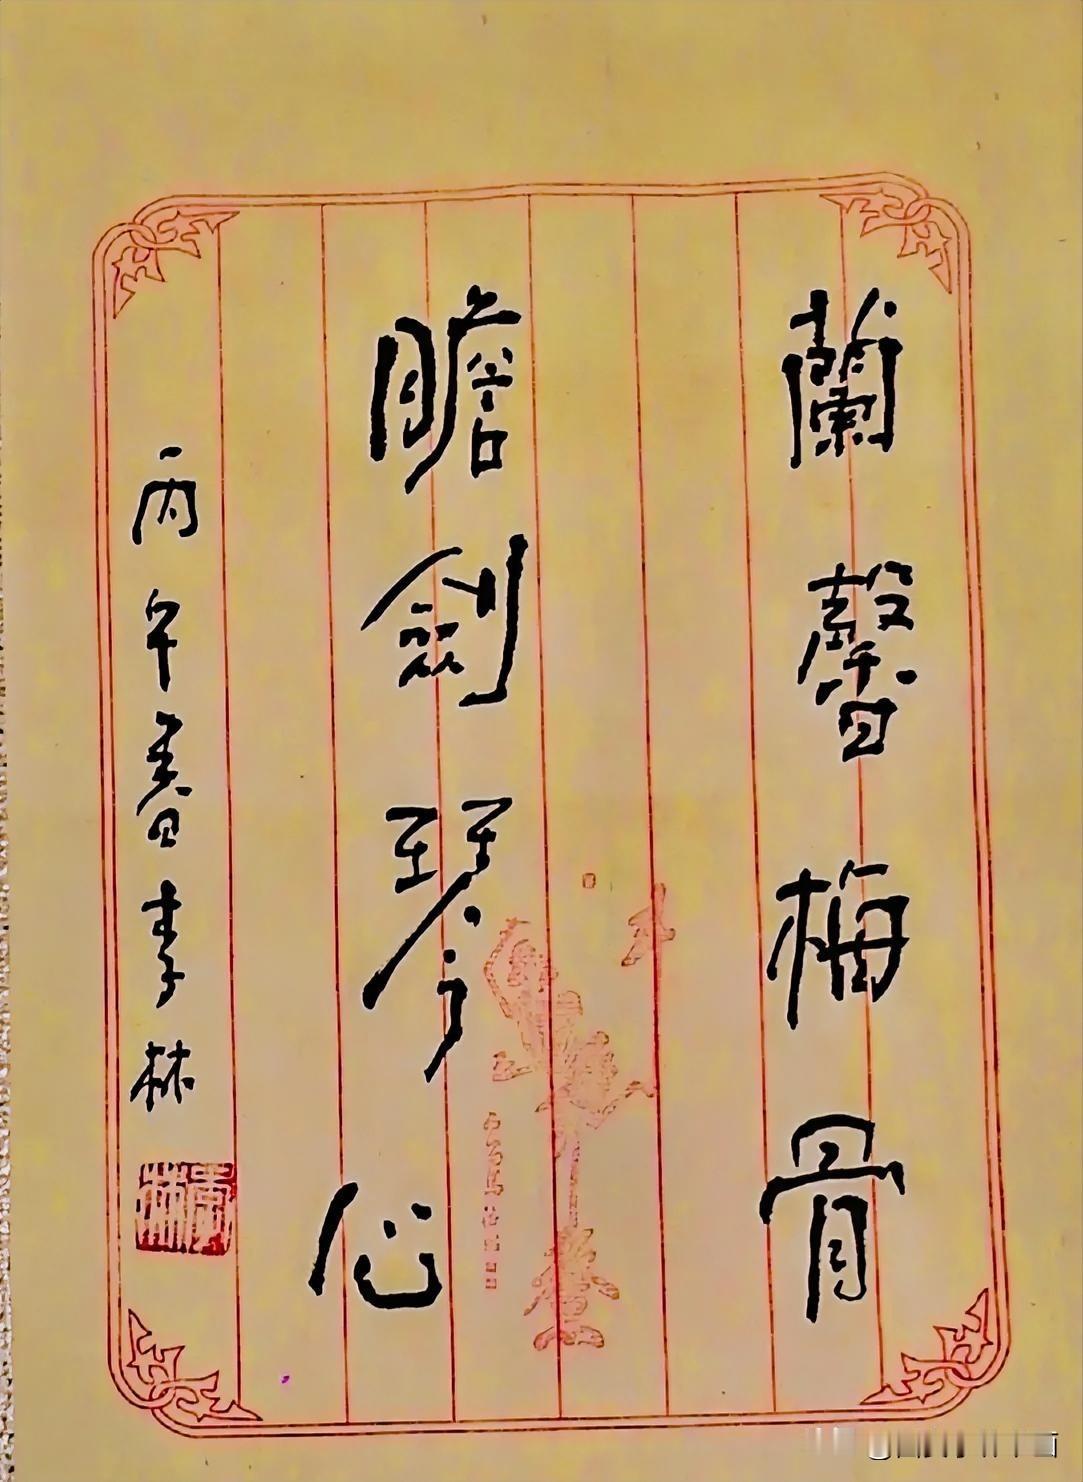 蘭馨梅骨
膽劍琴心
丙午春李林